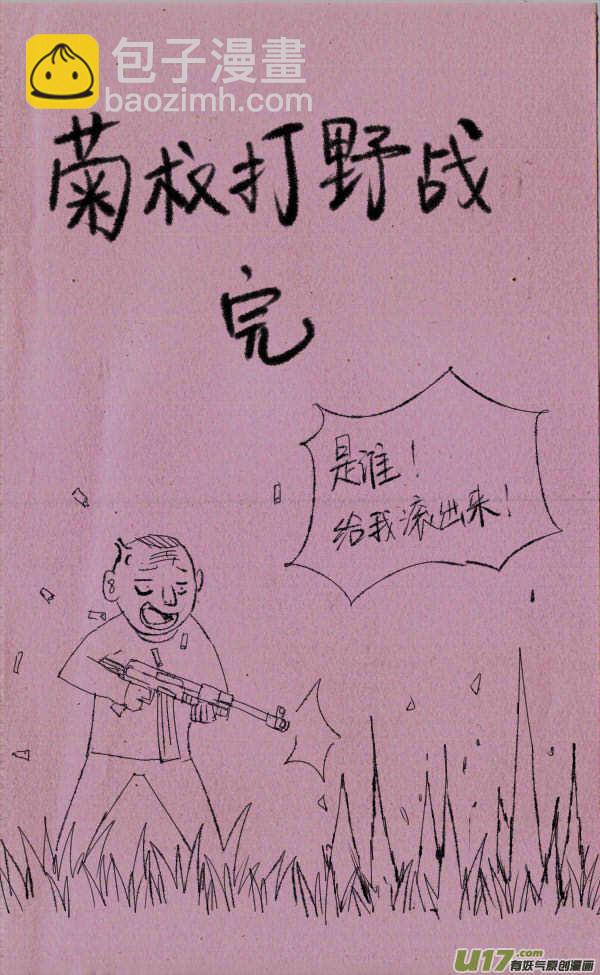 包子漫畫
baozimh.com
菊叔打野战
完
是谁！
给我滚出来！
U17.com
有妖气原创漫画